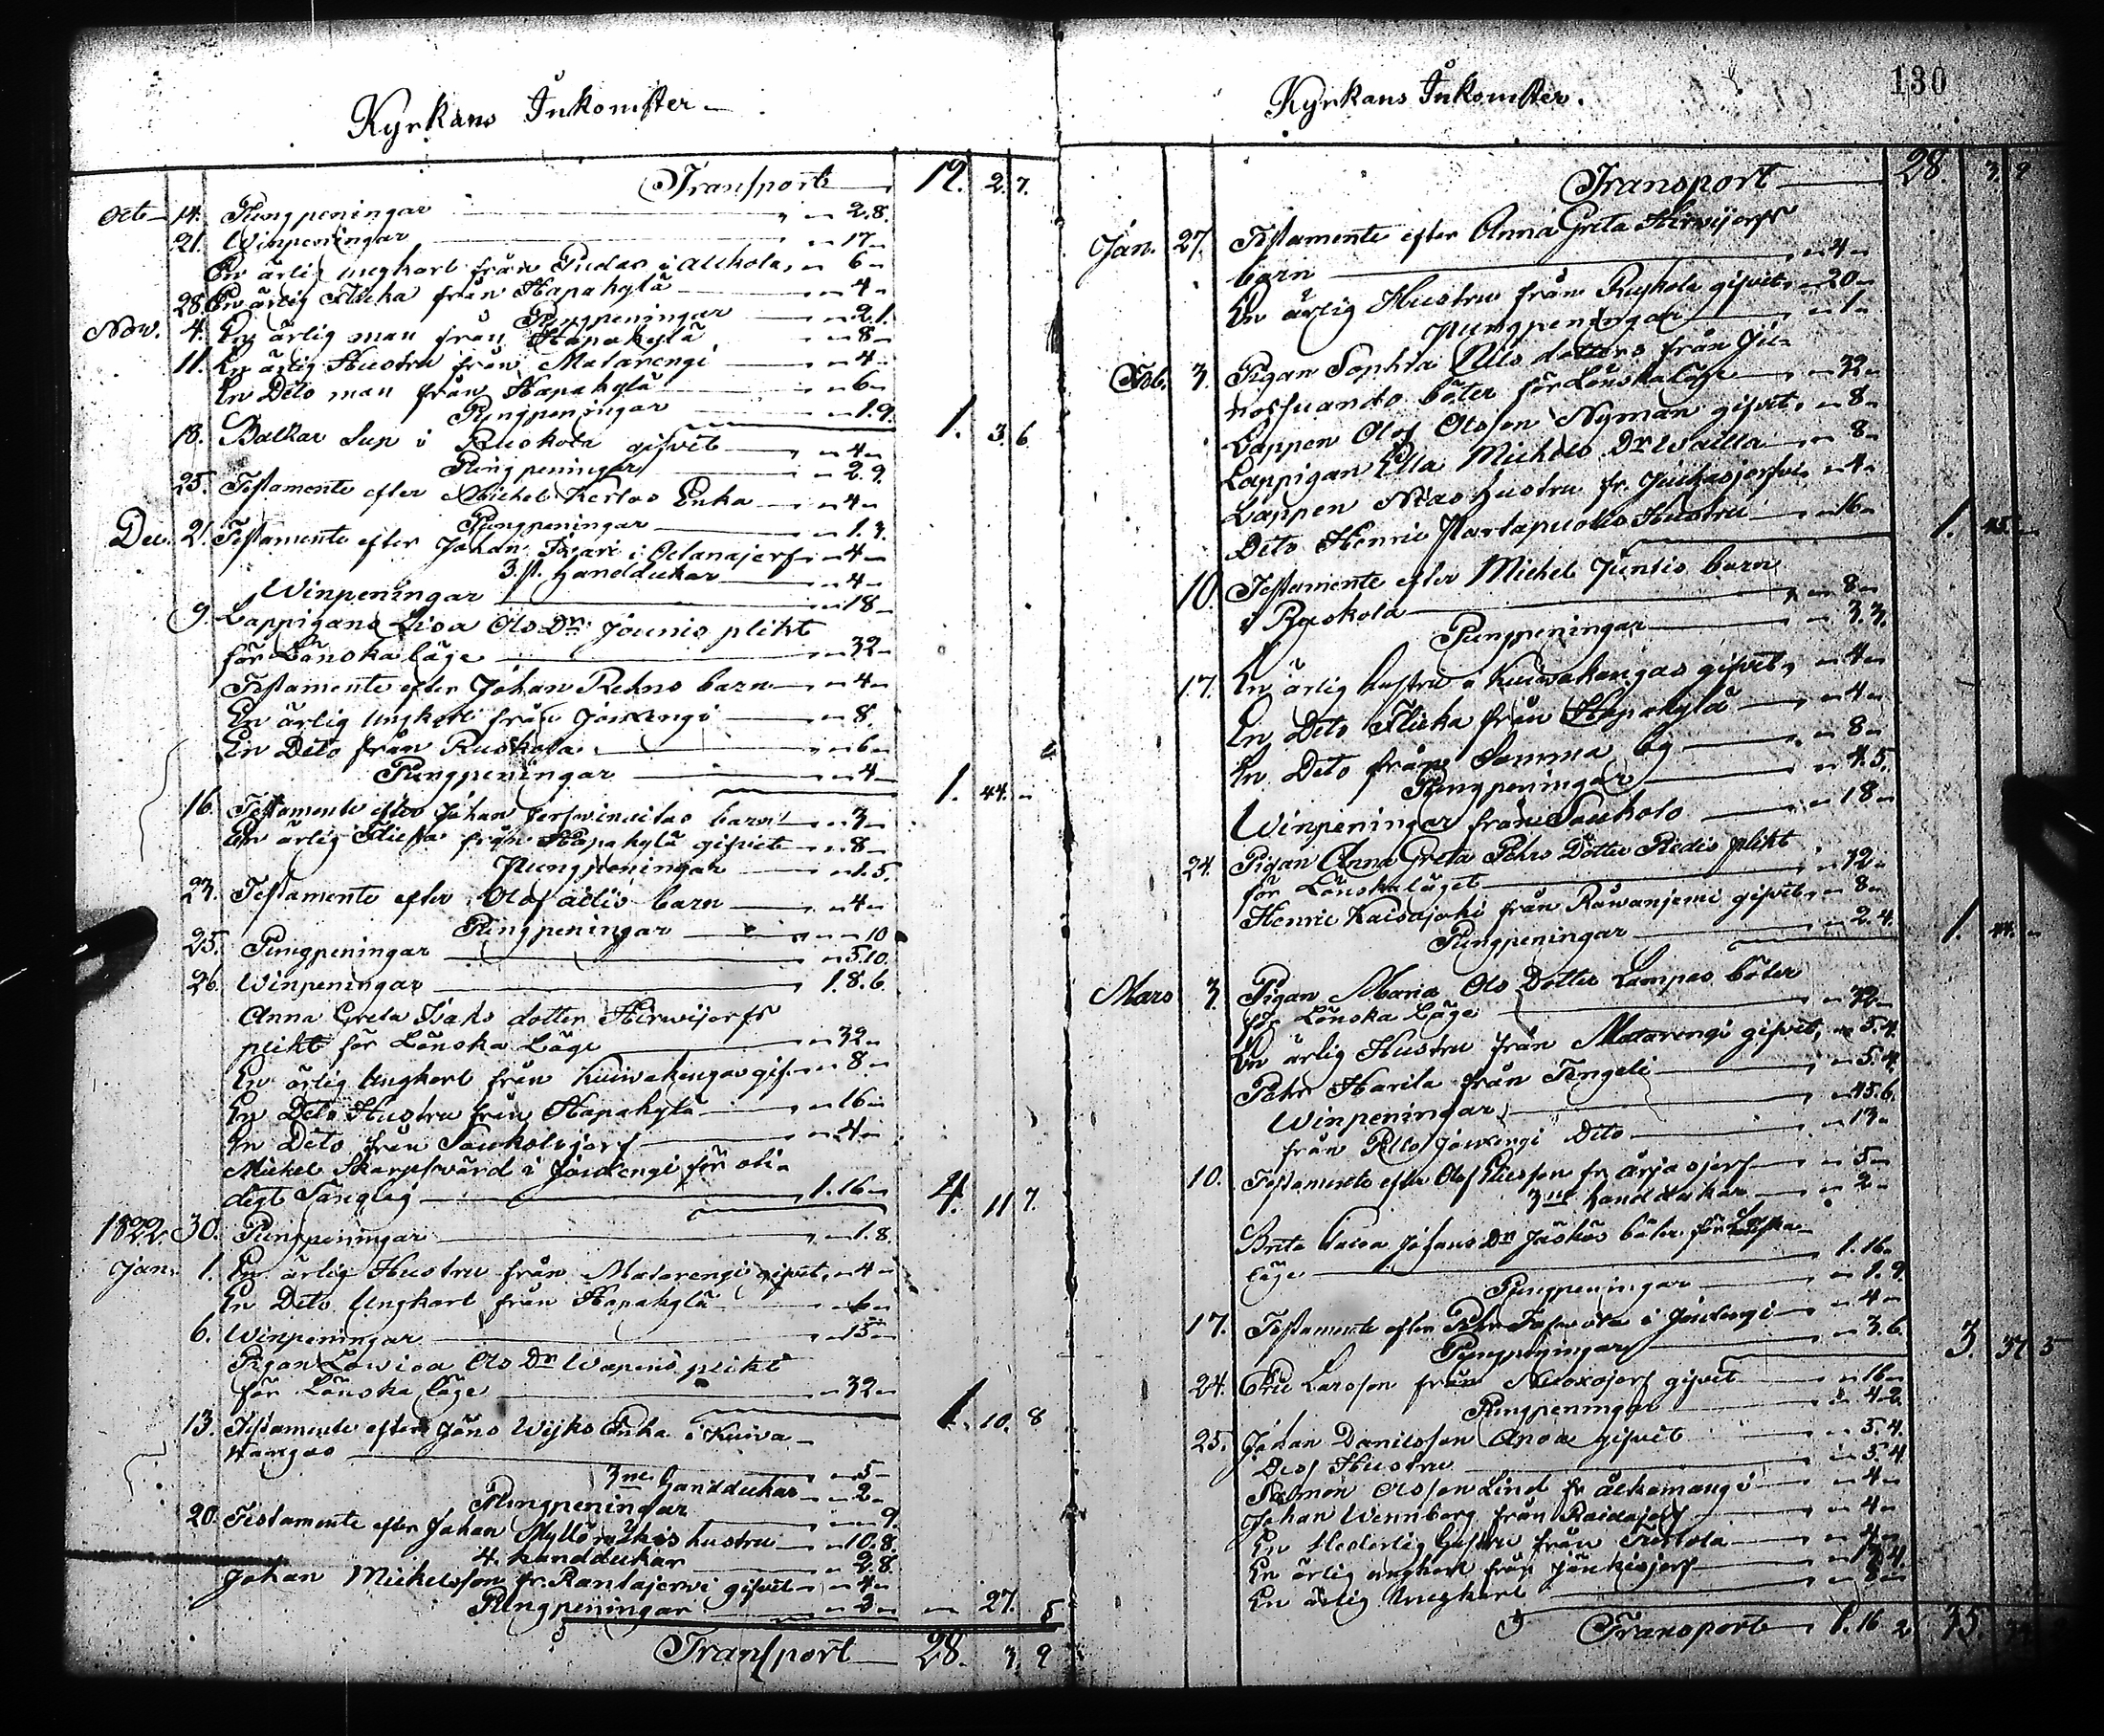 Kyrkans Inkomster
Transport 12. 2. 7.
Oct 14. Pungpeningar 2.8.
21. Winpeningar 17
En ärlig ungkarl från i Alkola, 6
28. En ärlig Flicka från Hapakylä 4
Pungpeningar 2.1.
Nov. 4. En ärlig man från Hapakylä 8
11. En ärlig Hustru från Matarengi 4
En Dito man från Hapakylä 6
Pungpeningar 1.9. 1. 3. 6
18. i Ruskola gifvit 4
Pungpeningar 2.9.
25. Testamente efter Michel Enka 4
Pungpeningar 1.3.
Dec. 2. Testamente efter Johan i 4
3. st. handdukar 4
Winpeningar 18
9. Lappigans Lisa Ols Dr. Jounis plikt
för Lönska läge 32
Testamente efter Johan Rehns barn 4
En ärlig Ungkarl från Jouxengi 8.
En Dito från Ruskola 6
Pungpeningar 4 1. 44.
16. Testamente efter Johan barn 3
En ärlig Flicka från Hapakylä gifvit 8
Pungpeningar 1.5.
23. Testamente efter Olof barn 4
Pungpeningar 10
25. Pungpeningar 5.10.
26. Winpeningar 1.8.6.
Anna Greta Isaks dotter Hirwijerfs
plikt för Lönska Läge 32
En ärlig Ungkarl från Kuiwakangas gif. 8
En Dito Hustru från Hapakylä 16
En Dito från 4
Michel Skarpsvärd i Jouxengi för
1.16 4. 11 7.
1822. 30. Pungpeningar 1.8
Jan. 1. En ärlig Hustru från Matarengi gifvit, 4
En Dito Ungkarl från Hapakylä 6
6. Winpeningar 15
Pigan Lowisa Ols Dr plikt
för Lönska läge 32 1. 10. 8
13. Testamente efter Jöns Wijks Enka i Kuiva
kangas 5
3ne Handdukar 2
Pungpeningar 9
20. Testamente efter Johan hustru 10.8.
4. handdukar 2.8
Johan Michelsson fr. Rantajerwi gifvit 4
Pungpeningar 3 27. 5
Transport 28. 3. 9
Kyrkans Inkomster.
130
Transport 28. 3. 9
Jan. 27. Testamente efter Anna Greta Hirwijerfs
barn 4
En ärlig Hustru från Ruskola gifvit, 20
Pungpeningar 1
Feb. 3. Pigan Sophia Nils dotters från Ju
nossuando böter för Lönskaläge 32
Lappen Olof Olsson Nyman gifvit, 8
Lappigan Ella Michels Dr 8
Lappen hustru fr. Juckasjerfvi 4
Dito Henric Hustru 16 1. 45.
10. Testamente efter Michel Juntis barn
i Ruskola 8
Pungpeningar 3.3.
17. En ärlig hustru i Kuiwakangas gifvit, 4
En Dito Flicka från Hapakylä 4
En Dito från Samma by 8
Pungpeningar 4.5.
Winpeningar från 18
24. Pigan Anna Greta Pehrs Dotter plikt
för Lönskaläget 32
Henric från gifvit, 8
Pungpeningar 2.4. 1. 44.
Mars 3. Pigan Maria Ols Dotter Lampas böter
för Lönska Läge 32
En ärlig Hustru från Matarengi gifvit, 5.4.
Pehr Harila från Tengeli 5.4.
Winpeningar 45.6.
från Pello Jouxengi Dito 13
10. Testamente efter Olof fr. 5
3ne handdukar 2
Brita Johans Dr böter för Lönska
läge 1.16
Pungpeningar 1.9
17. Testamente efter Pehr i Jouxengi 4
Pungpeningar 3.6. 3. 37 5
24. Eric Larsson från gifvit 16
Pungpeningar 4.2
25. Johan Danielsson gifvit 5.4.
Dess Hustru 5.4
Salmon Olsson Lind fr. 4
Johan Wennberg från 4
En Hederlig Hustru från Turtola 4
En ärlig ungkarl från
En ärlig Ungkarl
Transport 1.16 2 35.